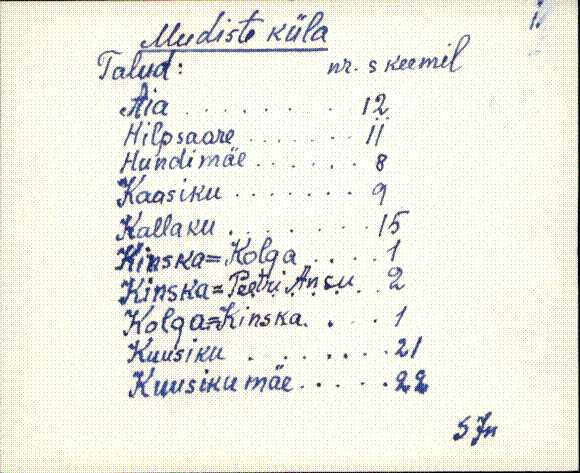 Mudiste küla
Talud: nr. skeemil
Aia . . . . . . . . 12
Hilpsaare . . . . . . . 11
Hundimäe . . . . . . 8
Kaasiku . . . . . . . 9
Kallaku . . . . . . . 15
Kinska=Kolga . . . . 1
Kinska=Peetri Ansu . . 2
Kolga=Kinska . . . . 1
Kuusiku . . . . . . . 21
Kuusikumäe . . . . . 22